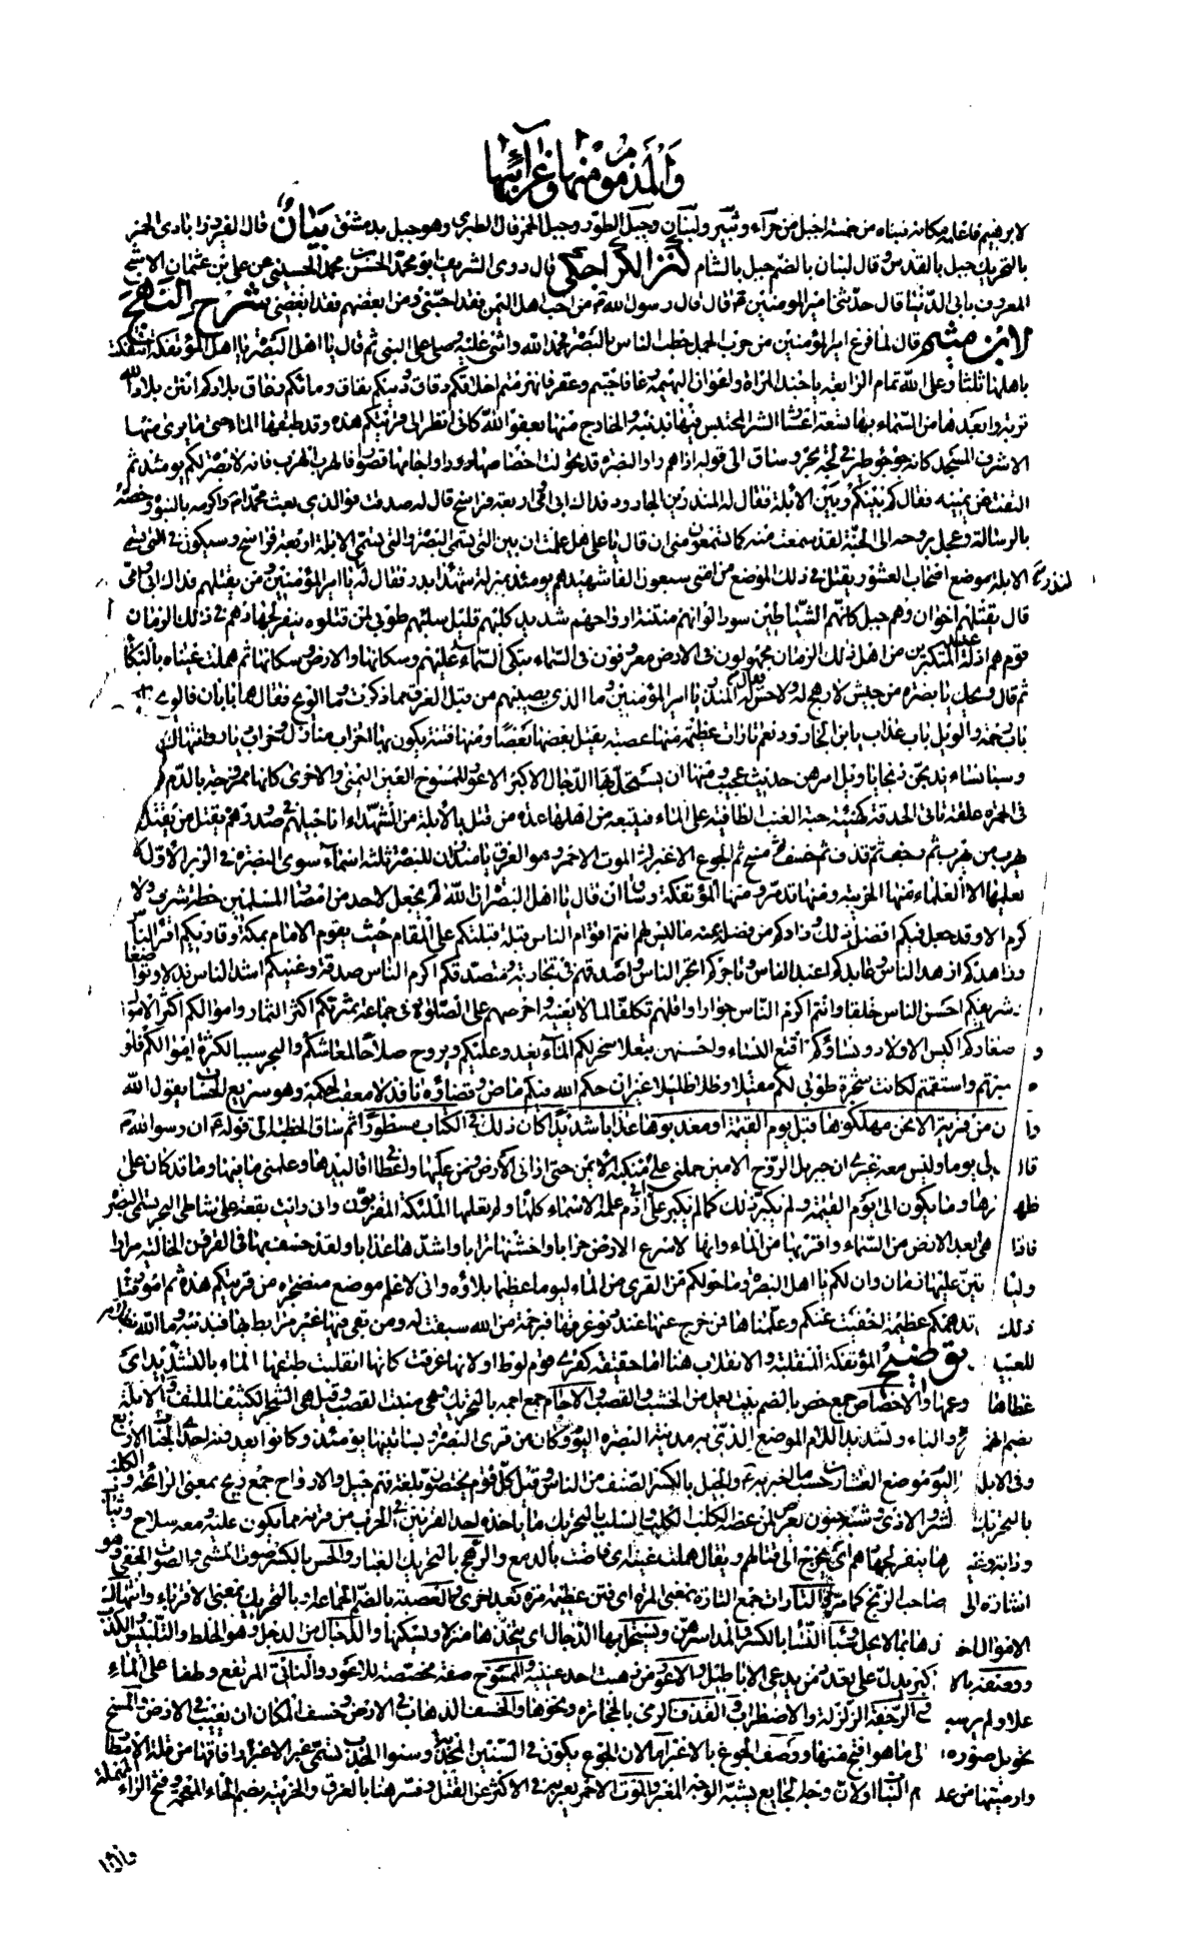 والمذموم منها وغرائبها
لابراهيم فاعلمه مكانه فبناه من خمسة اجبل من حراء وثبير ولبنان وجبل الطور وجبل الخمر قال الطبري وهو جبل بدمشق بيان قال الفيروزابادى الخمر
بالتحريك جبل بالقدس وقال لبنان بالضم جبل بالشام كنز الكراجكى قال روى الشريف ابو محمد الحسن بن محمد الحسينى عن على بن عثمان الاشج
المعروف بابى الدنيا قال حدثنى امير المؤمنين ع قال قال رسول الله ص من احب اهل اليمن فقد احبنى ومن ابغضهم فقد ابغضنى شرح النهج
لابن ميثم قال لما فرغ امير المؤمنين من حرب الجمل خطب الناس بالبصرة فحمد الله واثنى عليه وصلى على النبى ثم قال يا اهل البصرة يا اهل المؤتفكة ائتفكت
باهلها ثلثا وعلى الله تمام الرابعة يا جند المراة واعوان البهيمة رغا فاجبتم وعقر فانهزمتم اخلاقكم دقاق ودينكم نفاق وماؤكم زعاق بلادكم انتن بلاد الله
تربة وابعدها من السماء بها تسعة اعشار الشر المحتبس فيها بذنبه والخارج منها بعفو الله كانى انظر الى قريتكم هذه وقد طبقها الماء حتى ما يرى منها
الا شرف المسجد كانه جؤجؤ طير فى لجة بحر وساق الى قوله اذا هم راوا البصرة قد تحولت اخصاصها دورا واجامها قصورا فالهرب الهرب فانه لا بصرة لكم يومئذ ثم
التفت عن يمينه فقال كم بينكم وبين الابلة فقال له المنذر بن الجارود فداك ابى وامى اربعة فراسخ قال له صدقت فو الذى بعث محمدا ص واكرمه بالنبوة وخصه
بالرسالة وعجل بروحه الى الجنة لقد سمعت منه كما تسمعون منى ان قال يا على هل علمت ان بين التى تسمى البصرة والتى تسمى الابلة اربعة فراسخ وسيكون فى التى تسمى
الابلة موضع اصحاب العشور يقتل فى ذلك الموضع من امتى سبعون الفا شهيدهم يومئذ بمنزلة شهداء بدر فقال له المنذر يا امير المؤمنين ومن يقتلهم فداك ابى وامى
قال يقتلهم اخوان وهم جيل كانهم الشياطين سود الوانهم منتنة ارواحهم شديد كلبهم قليل سلبهم طوبى لمن قتلوه ينفر لجهادهم فى ذلك الزمان
قوم هم اذلة عند المتكبرين من اهل ذلك الزمان مجهولون فى الارض معروفون فى السماء تبكى السماء عليهم وسكانها والارض وسكانها ثم هملت عيناه بالبكاء
ثم قال ويحك يا بصرة من جيش لا رهج له ولا حس فقال له المنذر يا امير المؤمنين وما الذى يصيبهم من قبل الغرق مما ذكرت وما الويح فقال هما بابان فالويح
باب رحمة والويل باب عذاب يا ابن الجارود نعم تارات عظيمة منها عصبة يقتل بعضها بعضا ومنها فتنة يكون بها اخراب منازل وخراب ديار وانتهاك
وسبا نساء يذبحن ذبحا يا ويل امرهن حديث عجيب ومنها ان يستحل بها الدجال الاكبر الاعور الممسوح العين اليمنى والاخرى كانها ممزوجة بالدم
فى الحمرة علقة ناتى الحدقة كهيئة حبة العنب الطافية على الماء فيتبعه من اهلها عدة من قتل بالابلة من الشهداء اناجيلهم فى صدورهم يقتل من يقتل
يهرب من يهرب ثم رجف ثم قذف ثم خسف ثم مسخ ثم الجوع الاغبر ثم الموت الاحمر وهو الغرق يا منذر ان للبصرة ثلثة اسماء سوى البصرة فى الزبر الاول لا
يعلمها الا العلماء منها الخريبة ومنها تدمر ومنها المؤتفكة وساق الى ان قال يا اهل البصرة ان الله لم يجعل لاحد من امصار المسلمين خطة شرف ولا
كرم الا وقد جعل فيكم افضل ذلك وزادكم من فضله بمنه ما ليس لهم انتم اقوم الناس قبلة قبلتكم على المقام حيث يقوم الامام بمكة وقارئكم اقرأ الناس
وزاهدكم ازهد الناس وعابدكم اعبد الناس وتاجركم اتجر الناس واصدقهم فى تجارته ومتصدقكم اكرم الناس صدقة وغنيكم اشد الناس بذلا وتواضعا
شريفكم احسن الناس خلقا وانتم اكرم الناس جوارا واقلهم تكلفا لما لا يعنيه واحرصهم على الصلوة فى جماعة ثمرتكم اكثر الثمار واموالكم اكثر الاموال
و صغاركم اكيس الاولاد ونساؤكم اقنع النساء واحسنهن تبعلا سخر لكم الماء يغدو عليكم ويروح صلاحا لمعاشكم والبحر سببا لكثرة اموالكم فلو
صبرتم واستقمتم لكانت شجرة طوبى لكم مقيلا وظلا ظليلا غير ان حكم الله فيكم ماض وقضاؤه نافذ لا معقب لحكمه وهو سريع الحساب يقول الله
وان من قرية الا نحن مهلكوها قبل يوم القيمة او معذبوها عذابا شديدا كان ذلك فى الكتاب مسطورا ثم ساق الخطبة الى قوله ع ان رسول الله ص
قال لى يوما وليس معه غيرى ان جبرئيل الروح الامين حملنى على منكبه الايمن حتى ارانى الارض ومن عليها واعطانى اقاليدها وعلمنى ما فيها وما قد كان على
ظهرها وما يكون الى يوم القيمة ولم يكبر ذلك على كما لم يكبر على ابى ادم علمه الاسماء كلها ولم يعلمها الملئكة المقربون وانى رايت بقعة على شاطئ البحر تسمى البصرة
فاذا هى ابعد الارض من السماء واقربها من الماء وانها لاسرع الارض خرابا واخشنها ترابا واشدها عذابا ولقد خسف بها فى القرون الخالية مرارا
ولياتين عليها زمان وان لكم يا اهل البصرة وما حولكم من القرى من الماء ليوما عظيما بلاؤه وانى لاعلم موضع منفجره من قريتكم هذه ثم امور قبل
ذلك تدهمكم عظيمة اخفيت عنكم وعلمناها فمن خرج عنها عند دنو غرقها فبرحمة من الله سبقت له ومن بقى فيها غير مرابط بها فبذنبه وما الله بظلام
للعبيد توضيح المؤتفكة المنقلبة والانقلاب هنا اما حقيقة كقرى قوم لوط او لانها غرقت كانها انقلبت طبقها الماء بالتشديد اى
غطاها وعمها والاخصاص جمع خص بالضم بيت يعمل من الخشب والقصب والاجام جمع اجمة بالتحريك وهى منبت القصب وقيل هى الشجر الكثيف الملتف والابلة
بضم الهمزة والباء وتشديد اللام الموضع الذى به مدينة البصرة اليوم وكان من قرى البصرة وبساتينها يومئذ وكانوا يعدونه احدى الجنات الاربع
وفى الابلة اليوم موضع العشارين حسب ما اخبر به ع والجيل بالكسر الصنف من الناس وقيل كل قوم يختصون بلغة فهم جيل والارواح جمع ريح بمعنى الرائحة والكلب
بالتحريك الشر والاذى وشبه جنون يعرض لمن عضه الكلب الكلب والسلب بالتحريك ما ياخذه احد القرنين فى الحرب من قرنه مما يكون عليه ومعه سلاح وثياب
ودابة وغيرها ينفر لجهادهم اى يخرج الى قتالهم ويقال هملت عينه اى فاضت بالدمع والرهج بالتحريك الغبار والحس بالكسر صوت المشى والصوت الخفى وهو
اشارة الى صاحب الزنج كما مر والتارات جمع التارة بمعنى المرة اى فتن عظيمة مرة بعد اخرى والعصبة بالضم الجماعة وبالتحريك بمعنى الاقرباء وانتهاك
الاموال اخذها بما لا يحل وسبأ النساء بالكسر والمد اسرهن ويستحل بها الدجال اى يتخذها منزلا ويسكنها والدجال من الدجل وهو الخلط والتلبيس والكذب
ووصفه بالاكبر يدل على تعدد من يدعى الاباطيل والاعور من ذهبت احد عينيه والممسوح صفة مخصصة للاعور والناتئ المرتفع وطفا على الماء
علا ولم يرسب والرجفة الزلزلة والاضطراب والقذف الرمى بالحجارة ونحوها والخسف الذهاب فى الارض وخسف المكان ان يغيب فى الارض والمسخ
تحويل صورة الى ما هو اقبح منها ووصف الجوع بالاغبر اما لان الجوع يكون فى السنين المجدبة وسنوا الجدب تسمى غبرا لاغبرار افاقها من قلة الامطار
وارضيها من عدم النبات اولان وجه الجايع يشبه الوجه المغبر والموت الاحمر يعبر به فى الاكثر عن القتل وفسر هنا بالغرق والخريبة بضم الخاء المعجمة وفتح الراء المهملة